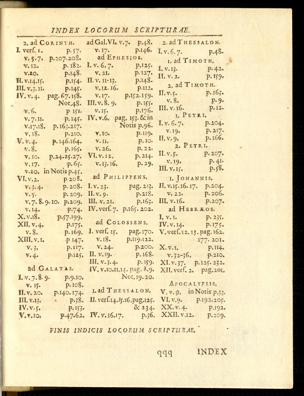 INDEX LOCORUM SCRIPTURAE.
2. ad CORINTH.
I. vers. 1. p.57.
v. 5-7. p.207.208.
v. 12. p.182.
v.20. p.148.
III. v.14.15. p.154.
IV. v.4. pag. 67.158.
Not.48.
v.6. p.151.
v.7.11. p.145.
v.17.18. p.163.217.
v.18. p.220.
V. v.4. p.146.164.
v.8. p.165.
v.10. p.24.25.27.
v.17. p.65.
v.20. in Notis p.45.
VI. v.2. p.208.
v.3.4. p.208.
v.5. p.209.
v.7.8.9.10. p.209.
v.14. p.74.
XII. v.4. p.175.
v.8. p.169.
XIII. v.1. p.147.
v.3. p.117.
v.4. p.125.
ad GALATAS.
I. v.7.8.9. p.9.10.
v.15. p.18.
II. v.20. p.140.174.
III. v.13. p.58.
IV. v.5. p.153.
V. v.10. p.47.62.
ad Gal. VI. v.7. p.48.
v.17. p.146.
ad EPHESIOS.
I. v.6.7. p.125.
v.21. p.127.
II. v.11-13. p.148.
v.12.16. p.112.
v.17. p.152.159.
III. v.8.9. p.155.
v.15. p.176.
IV. v.6. pag. 152. & in
Notis p.96.
v.10. p.119.
v.11. p.10.
v.26. p.22.
VI. v.12. p.214.
v.13.16. p.29.
ad PHILIPPENS.
I. v.23. pag. 213.
II. v.9. p.218.
III. v.21. p.163.
IV. vers.7. p.165. 202.
ad COLOSSENS.
I. vers.15. pag.170.
v.18. p.119.122.
v.24. p.200.
II. v.19. p.168.
III. v.3.4. p.159.
IV. v.10.11.15. pag. 8.9.
Not.19.20.
1. ad THESSALON.
II. vers.14.15.16.pag.125.
& 234.
IV. v.16.17. p.36.
2. ad THESSALON.
I. v.6.7. p.48.
1. ad TIMOTH.
I. v.13. p.42.
II. v.2. p.159.
2. ad TIMOTH.
II. v.5. p.165.
v.8. p.9.
III. v.16. p.12.
1. PETRI.
I. v.6.7. p.204.
v.19. p.217.
II. v.9. p.166.
2. PETRI.
II. v.5. p.207.
v.19. p.41.
III. v.15. p.58.
1. JOHANNIS.
II. v.15.16.17. p.204.
v.22. p.205.
III. v.16. p.207.
ad HEBRAEOS.
I. v.1. p.231.
IV. v.14. p.175.
V. vers.12.13. pag.162.
177. 201.
X. v.1. p.114.
v.32-36. p.210.
XI. v.37. p.125. 232.
XII. vers.2. pag.201.
APOCALYPSIS.
V. v.9. in Notis p.57.
VI. v.9. p.192.205.
XX. v.4. p.192.
XXII. v.12. p.209.
FINIS INDICIS LOCORUM SCRIPTURAE.
qqq INDEX